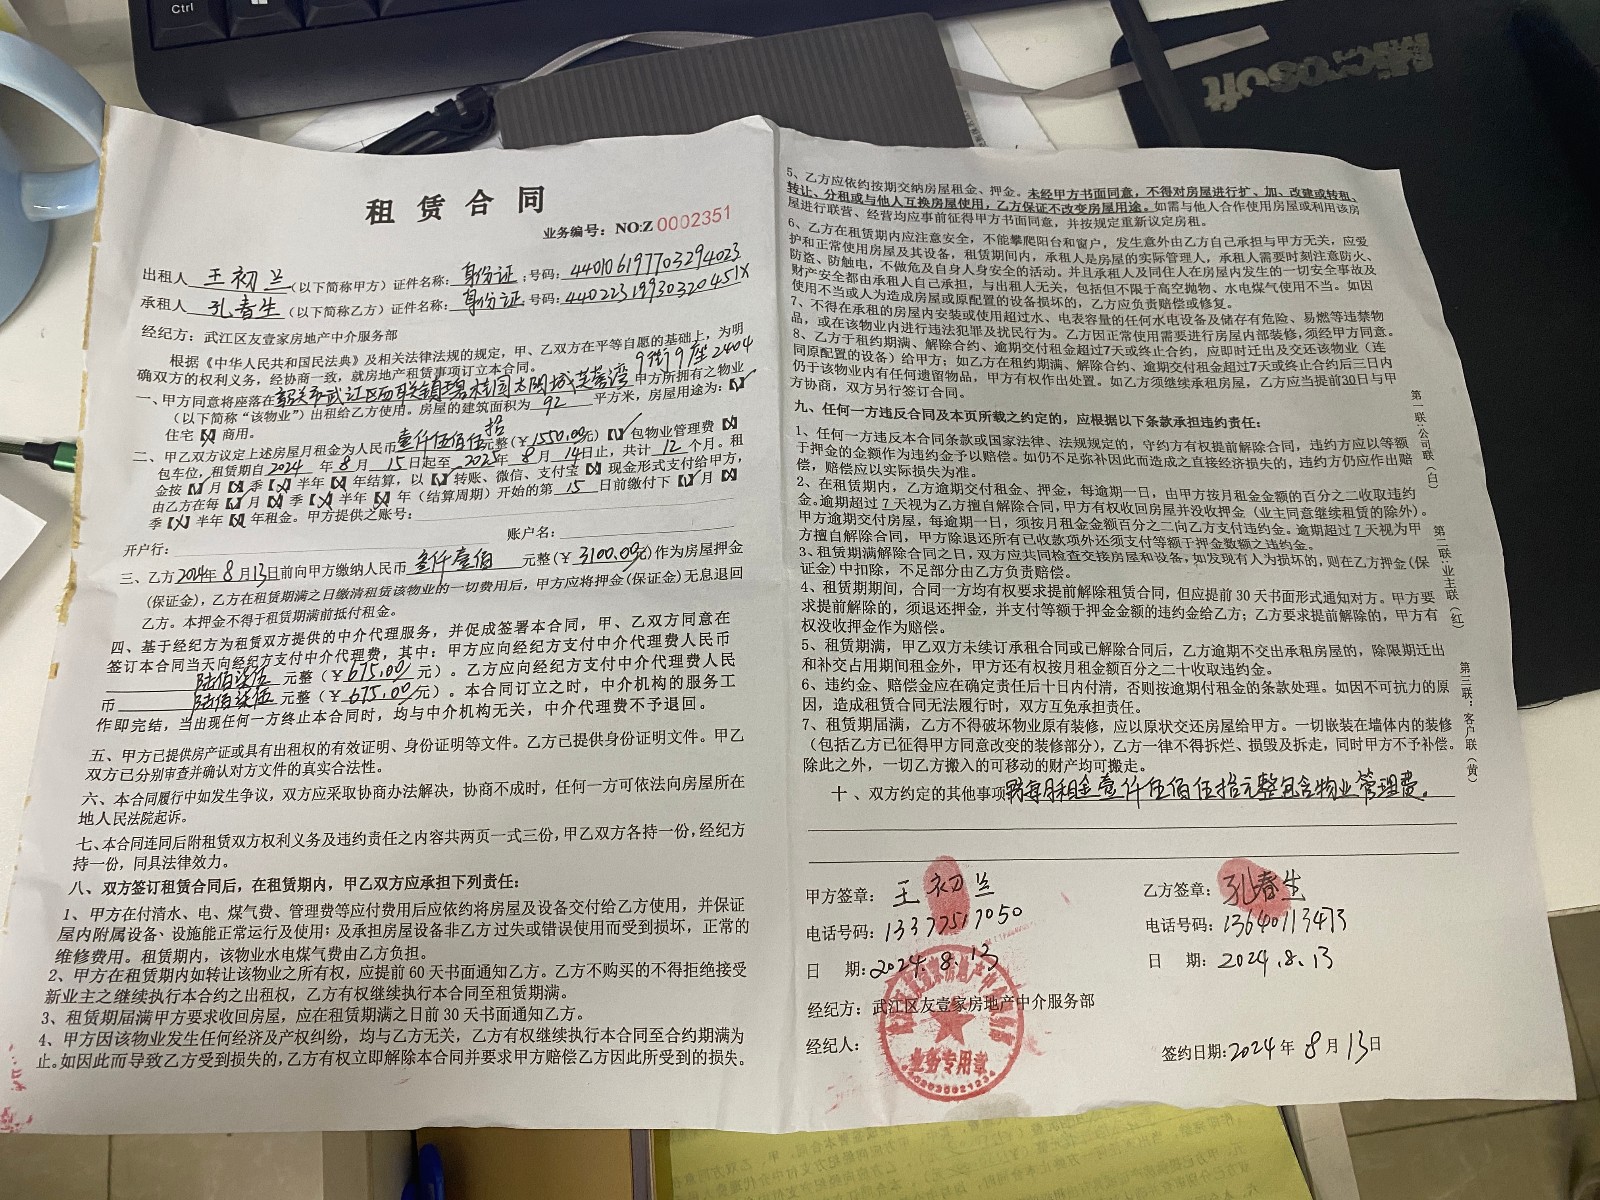 Ctrl
Microsoft
租赁合同
业务编号：NO:Z 0002351
出租人 王初兰 (以下简称甲方）证件名称：身份证；号码：440106197703294023
承租人 孔春生 (以下简称乙方）证件名称：身份证 号码：44022319930320451X
经纪方：武江区友壹家房地产中介服务部
根据《中华人民共和国民法典》及相关法律法规的规定，甲、乙双方在平等自愿的基础上，为明
确双方的权利义务，经协商一致，就房地产租赁事项订立本合同。
9街9座2404
一、甲方同意将座落在韶关市武江区西联镇碧桂园太阳城芙蓉湾 甲方所拥有之物业
(以下简称“该物业”）出租给乙方使用。房屋的建筑面积为 92 平方米，房屋用途为：【✓】
住宅【X】商用。
二、甲乙双方议定上述房屋月租金为人民币壹仟伍佰伍拾元整(￥1550.00元)【✓】包物业管理费【X】
包车位，租赁期自2024年8月15日起至2025年8月14日止，共计12个月。租
金按【✓】月【X】季【X】半年【X】年结算，以【✓】转账、微信、支付宝【X】现金形式支付给甲方，
由乙方在每【✓】月【X】季【X】半年【X】年（结算周期）开始的第15日前缴付下【✓】月【X】
季【X】半年【X】年租金。甲方提供之账号：
开户行： 账户名：
三、乙方2024年8月13日前向甲方缴纳人民币 叁仟壹佰 元整(￥3100.00元)作为房屋押金
(保证金)，乙方在租赁期满之日缴清租赁该物业的一切费用后，甲方应将押金(保证金)无息退回
乙方。本押金不得于租赁期满前抵付租金。
四、基于经纪方为租赁双方提供的中介代理服务，并促成签署本合同，甲、乙双方同意在
签订本合同当天向经纪方支付中介代理费，其中：甲方应向经纪方支付中介代理费人民币
陆佰柒伍 元整（￥675.00元）。乙方应向经纪方支付中介代理费人民
币 陆佰柒伍 元整（￥675.00元）。本合同订立之时，中介机构的服务工
作即完结，当出现任何一方终止本合同时，均与中介机构无关，中介代理费不予退回。
五、甲方已提供房产证或具有出租权的有效证明、身份证明等文件。乙方已提供身份证明文件。甲乙
双方已分别审查并确认对方文件的真实合法性。
六、本合同履行中如发生争议，双方应采取协商办法解决，协商不成时，任何一方可依法向房屋所在
地人民法院起诉。
七、本合同连同后附租赁双方权利义务及违约责任之内容共两页一式三份，甲乙双方各持一份，经纪方
持一份，同具法律效力。
八、双方签订租赁合同后，在租赁期内，甲乙双方应承担下列责任：
1、甲方在付清水、电、煤气费、管理费等应付费用后应依约将房屋及设备交付给乙方使用，并保证
屋内附属设备、设施能正常运行及使用；及承担房屋设备非乙方过失或错误使用而受到损坏，正常的
维修费用。租赁期内，该物业水电煤气费由乙方负担。
2、甲方在租赁期内如转让该物业之所有权，应提前60天书面通知乙方。乙方不购买的不得拒绝接受
新业主之继续执行本合约之出租权，乙方有权继续执行本合同至租赁期满。
3、租赁期届满甲方要求收回房屋，应在租赁期满之日前30天书面通知乙方。
4、甲方因该物业发生任何经济及产权纠纷，均与乙方无关，乙方有权继续执行本合同至合约期满为
止。如因此而导致乙方受到损失的，乙方有权立即解除本合同并要求甲方赔偿乙方因此所受到的损失。
5、乙方应依约按期交纳房屋租金、押金。未经甲方书面同意，不得对房屋进行扩、加、改建或转租、
转让、分租或与他人互换房屋使用，乙方保证不改变房屋用途。如需与他人合作使用房屋或利用该房
屋进行联营、经营均应事前征得甲方书面同意，并按规定重新议定房租。
6、乙方在租赁期内应注意安全，不能攀爬阳台和窗户，发生意外由乙方自己承担与甲方无关，应爱
护和正常使用房屋及其设备，租赁期间内，承租人是房屋的实际管理人，承租人需要时刻注意防火、
防盗、防触电，不做危及自身人身安全的活动。并且承租人及同住人在房屋内发生的一切安全事故及
财产安全都由承租人自己承担，与出租人无关，包括但不限于高空抛物、水电煤气使用不当。如因
使用不当或人为造成房屋或原配置的设备损坏的，乙方应负责赔偿或修复。
7、不得在承租的房屋内安装或使用超过水、电表容量的任何水电设备及储存有危险、易燃等违禁物
品，或在该物业内进行违法犯罪及扰民行为。乙方因正常使用需要进行房屋内部装修，须经甲方同意。
8、乙方于租约期满、解除合约、逾期交付租金超过7天或终止合约，应即时迁出及交还该物业（连
同原配置的设备）给甲方；如乙方在租约期满、解除合约、逾期交付租金超过7天或终止合约后三日内
仍于该物业内有任何遗留物品，甲方有权作出处置。如乙方须继续承租房屋，乙方应当提前30日与甲
方协商，双方另行签订合同。
九、任何一方违反合同及本页所载之约定的，应根据以下条款承担违约责任：
1、任何一方违反本合同条款或国家法律、法规规定的，守约方有权提前解除合同，违约方应以等额
于押金的金额作为违约金予以赔偿。如仍不足弥补因此而造成之直接经济损失的，违约方仍应作出赔
偿，赔偿应以实际损失为准。
2、在租赁期内，乙方逾期交付租金、押金，每逾期一日，由甲方按月租金金额的百分之二收取违约
金。逾期超过7天视为乙方擅自解除合同，甲方有权收回房屋并没收押金（业主同意继续租赁的除外）。
甲方逾期交付房屋，每逾期一日，须按月租金金额百分之二向乙方支付违约金。逾期超过7天视为甲
方擅自解除合同，甲方除退还所有已收款项外还须支付等额于押金数额之违约金。
3、租赁期满解除合同之日，双方应共同检查交接房屋和设备，如发现有人为损坏的，则在乙方押金(保
证金)中扣除，不足部分由乙方负责赔偿。
4、租赁期期间，合同一方均有权要求提前解除租赁合同，但应提前30天书面形式通知对方。甲方要
求提前解除的，须退还押金，并支付等额于押金金额的违约金给乙方；乙方要求提前解除的，甲方有
权没收押金作为赔偿。
5、租赁期满，甲乙双方未续订承租合同或已解除合同后，乙方逾期不交出承租房屋的，除限期迁出
和补交占用期间租金外，甲方还有权按月租金额百分之二十收取违约金。
6、违约金、赔偿金应在确定责任后十日内付清，否则按逾期付租金的条款处理。如因不可抗力的原
因，造成租赁合同无法履行时，双方互免承担责任。
7、租赁期届满，乙方不得破坏物业原有装修，应以原状交还房屋给甲方。一切嵌装在墙体内的装修
（包括乙方已征得甲方同意改变的装修部分），乙方一律不得拆烂、损毁及拆走，同时甲方不予补偿。
除此之外，一切乙方搬入的可移动的财产均可搬走。
十、双方约定的其他事项 每月租金壹仟伍佰伍拾元整包含物业管理费。
甲方签章：王初兰 乙方签章：孔春生
电话号码：13372517050 电话号码：13640113473
日 期：2024.8.13 日 期：2024.8.13
经纪方：武江区友壹家房地产中介服务部
经纪人： 签约日期：2024年8月13日
业务专用章
第一联：公司联（白）
第二联：业主联（红）
第三联：客户联（黄）